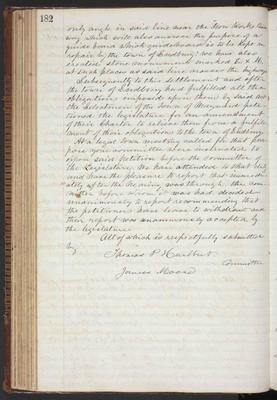 182
only angle in said line near the
way which will also answer the purpose of a
guide board which guide board is to be kept in
repair by the town of Sudbury; we have also
erected stone monuments marked
at such places as said line crosses the highway
Subsequently to this settlement and after
the town of Sudbury had fulfilled all the
obligations imposed upon them by said act
the Selectmen of the town of Maynard peti-
tioned the legislature for an amendment
of their Charter to release them from a fulfill-
ment of their obligations to the town of Sudbury.
At a legal town meeting called for that pur-
pose your committee were instructed to
oppose said Petition before the committee of
the Legislature. We have attended to that duty
and have the pleasure to report that immedi-
ately after the hearing was through the com-
mittee before whom it was had decided
unanimously to report recommending that
the petitioners have leave to withdraw and
their report was unanimously accepted by
the legislature.
All of which is respectfully submitted
by
Thomas P Hurlbut
Committee
James Moore